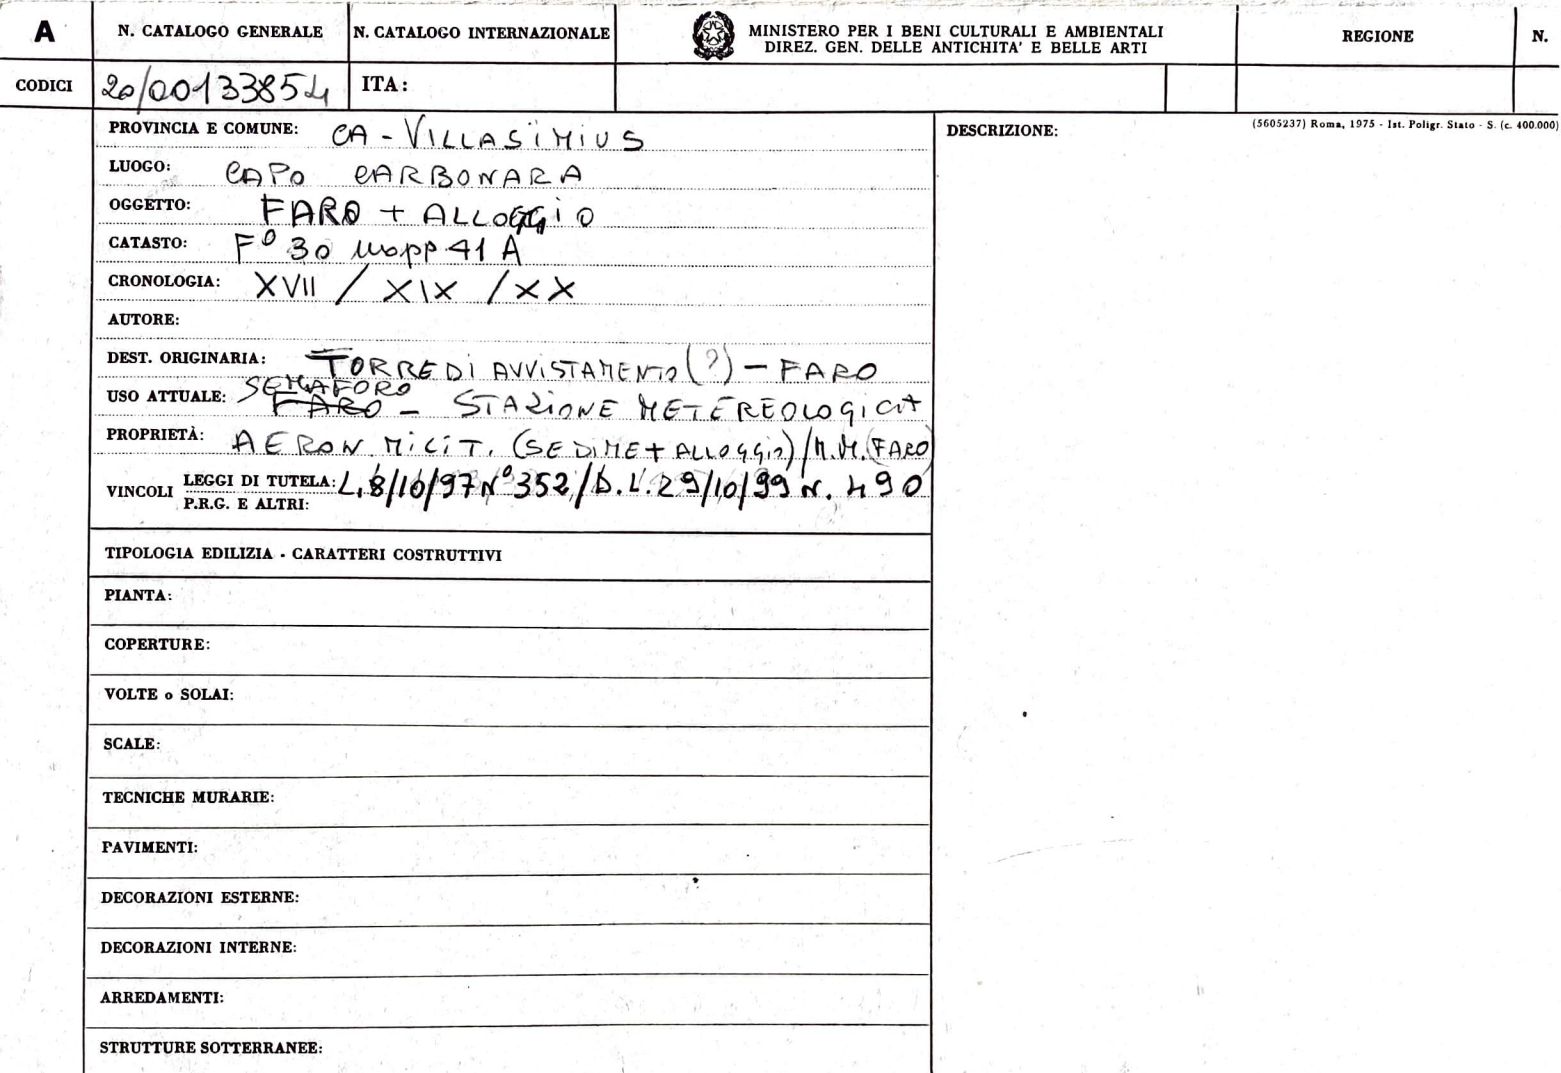 A
N. CATALOGO GENERALE
N. CATALOGO INTERNAZIONALE
MINISTERO PER I BENI CULTURALI E AMBIENTALI
DIREZ. GEN. DELLE ANTICHITA' E BELLE ARTI
REGIONE
N.
CODICI
20/00133854
ITA:
PROVINCIA E COMUNE: CA - VILLASIMIUS
LUOGO: CAPO CARBONARA
OGGETTO: FARO + ALLOGGIO
CATASTO: F° 30 mapp 41 A
CRONOLOGIA: XVII / XIX / XX
AUTORE:
DEST. ORIGINARIA: TORRE DI AVVISTAMENTO (?) - FARO
SEMAFORO
USO ATTUALE: FARO - STAZIONE METEREOLOGICA
PROPRIETÀ: AERON. MILIT. (SEDIME + ALLOGGIO) / M.M. (FARO)
VINCOLI
LEGGI DI TUTELA: L. 8/10/97 N° 352 / D.L. 29/10/99 N. 490
P.R.G. E ALTRI:
TIPOLOGIA EDILIZIA - CARATTERI COSTRUTTIVI
PIANTA:
COPERTURE:
VOLTE o SOLAI:
SCALE:
TECNICHE MURARIE:
PAVIMENTI:
DECORAZIONI ESTERNE:
DECORAZIONI INTERNE:
ARREDAMENTI:
STRUTTURE SOTTERRANEE:
DESCRIZIONE:
(5605237) Roma, 1975 - Ist. Poligr. Stato - S. (c. 400.000)